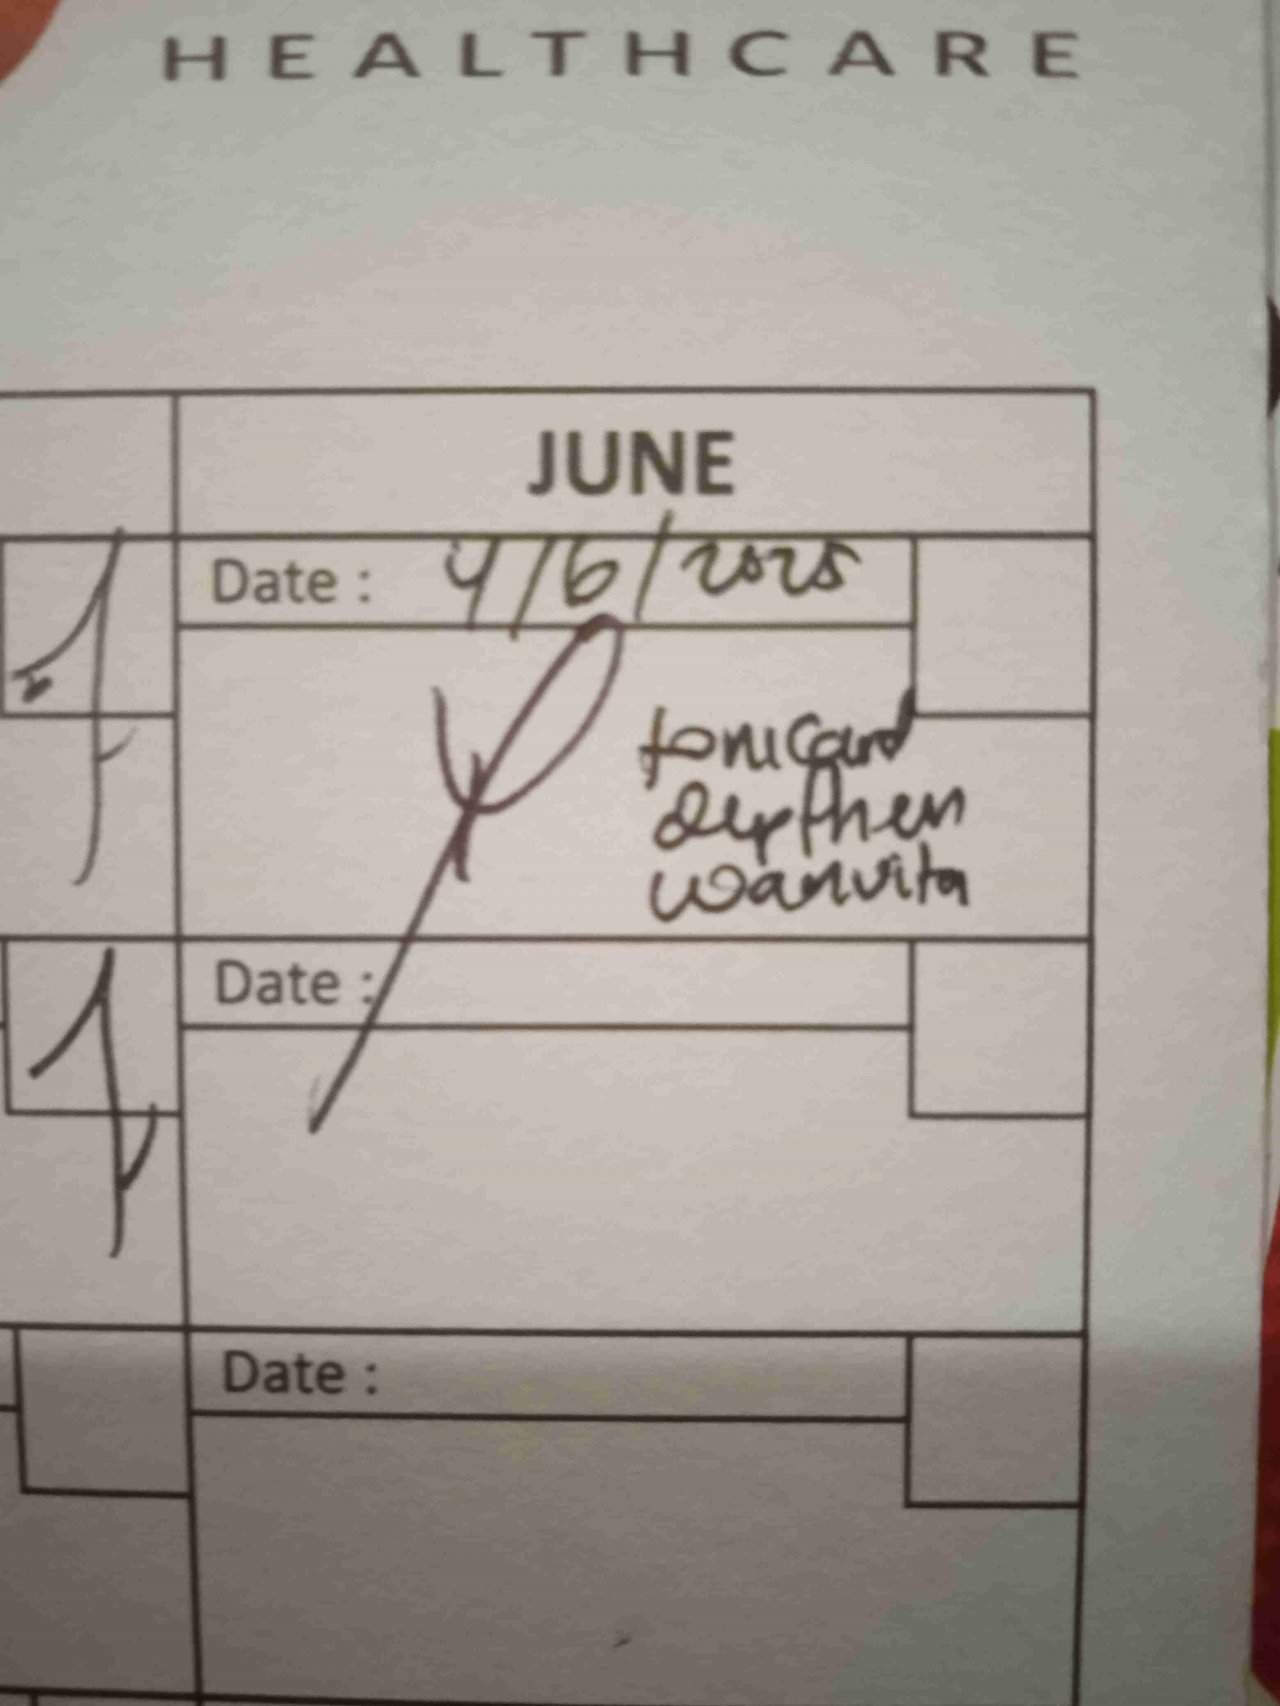 HEALTHCARE
JUNE
Date : 4/6/2025
tonicard
depthen
wanvita
Date :
Date :